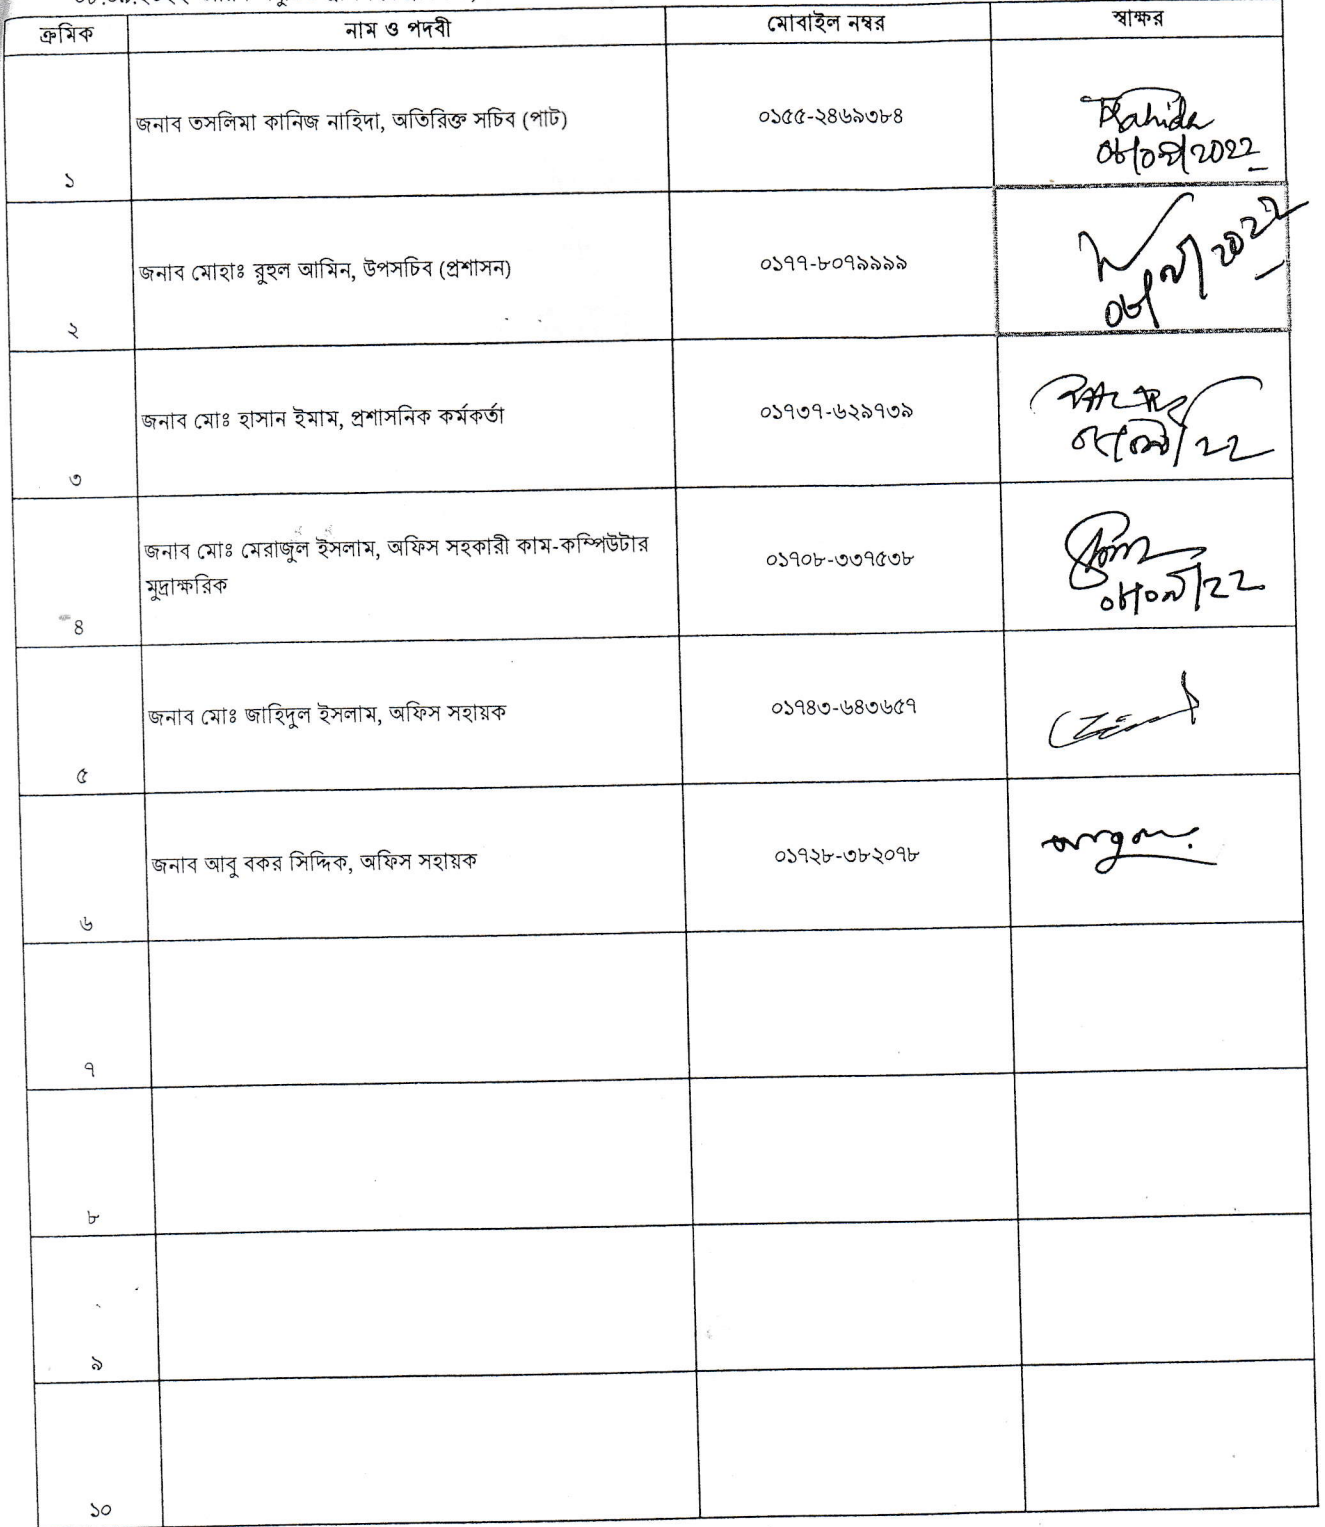 ক্রমিক নাম ও পদবী মোবাইল নম্বর স্বাক্ষর
জনাব তসলিমা কানিজ নাহিদা, অতিরিক্ত সচিব (পাট) ০১৫৫-২৪৬৯৩৮৪ Nahida
০৮/০৯/2022
১
জনাব মোহাঃ রুহুল আমিন, উপসচিব (প্রশাসন) ০১৭৭-৮০৭৯৯৯৯ ০৮/০৯/২০২২
২
জনাব মোঃ হাসান ইমাম, প্রশাসনিক কর্মকর্তা ০১৭৩৭-৬২৯৭৩৯
৩
জনাব মোঃ মেরাজুল ইসলাম, অফিস সহকারী কাম-কম্পিউটার ০১৭০৮-৩৩৭৫৩৮
মুদ্রাক্ষরিক ০৮/০৯/22
৪
জনাব মোঃ জাহিদুল ইসলাম, অফিস সহায়ক ০১৭৪৩-৬৪৩৬৫৭
৫
জনাব আবু বকর সিদ্দিক, অফিস সহায়ক ০১৭২৮-৩৮২০৭৮
৬
৭
৮
৯
১০